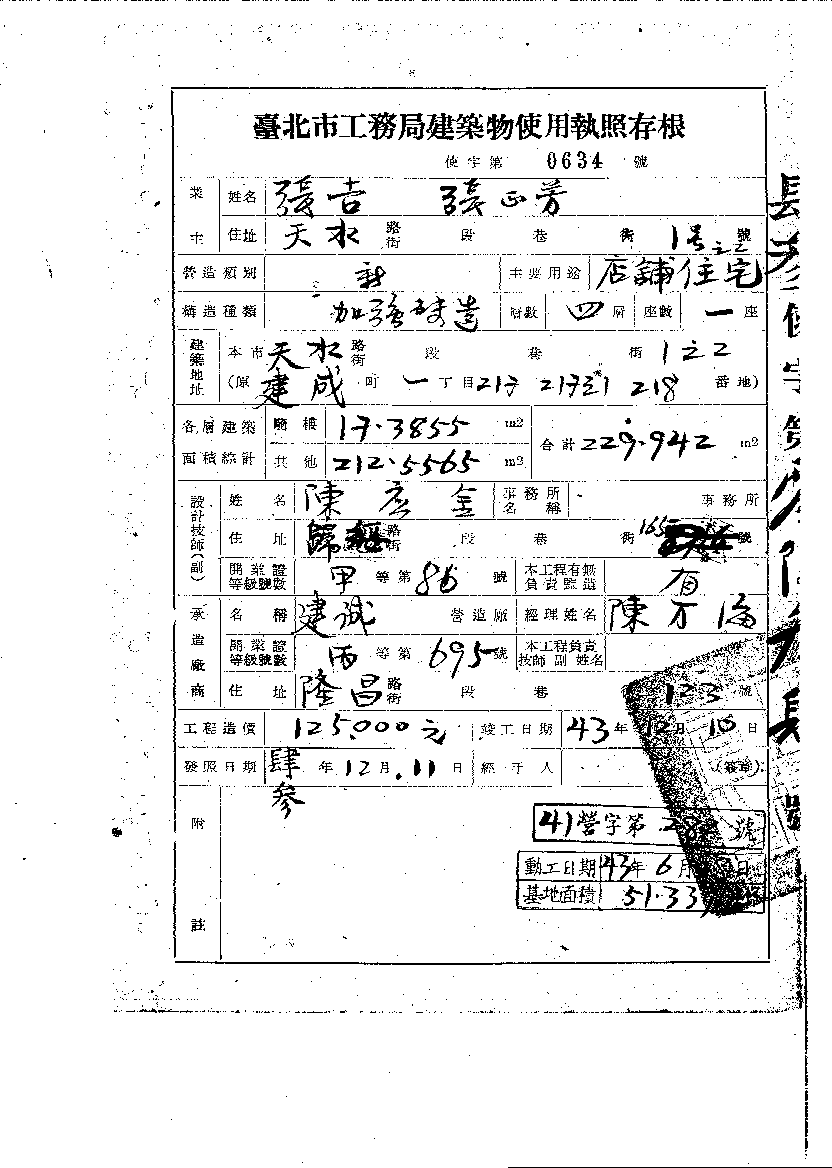 臺北市工務局建築物使用執照存根
使字第 0634 號
業主 姓名 張吉 張正芳
住址 天水 路街 段 巷 街 1號之2 號
營造類別 新 主要用途 店舖住宅
構造種類 加強磚造 層數 四層 座數 一座
建築地址 本市天水路街 段 巷 街 1之2
(原建成町一丁目217 217 218番地)
各層建築面積綜計 騎樓 17.3855 m2 合計 229.942 m2
其他 212.5565 m2
設計技師(副) 姓名 陳 金 事務所名稱 事務所
住址 歸綏 路街 段 巷 街 165 號
開業證等級號數 甲等第86號 本工程有無負責監造 有
承造廠商 名稱 建誠 營造廠 經理姓名 陳
開業證等級號數 丙等第695號 本工程負責技師副姓名
住址 隆昌 路街 段 巷 123 號
工程造價 125.000元 竣工日期 43年12月10日
發照日期 肆參年12月.11日 經手人 (簽章)
附註
41營字第 號
動工日期 43年6月 日
基地面積 51.33